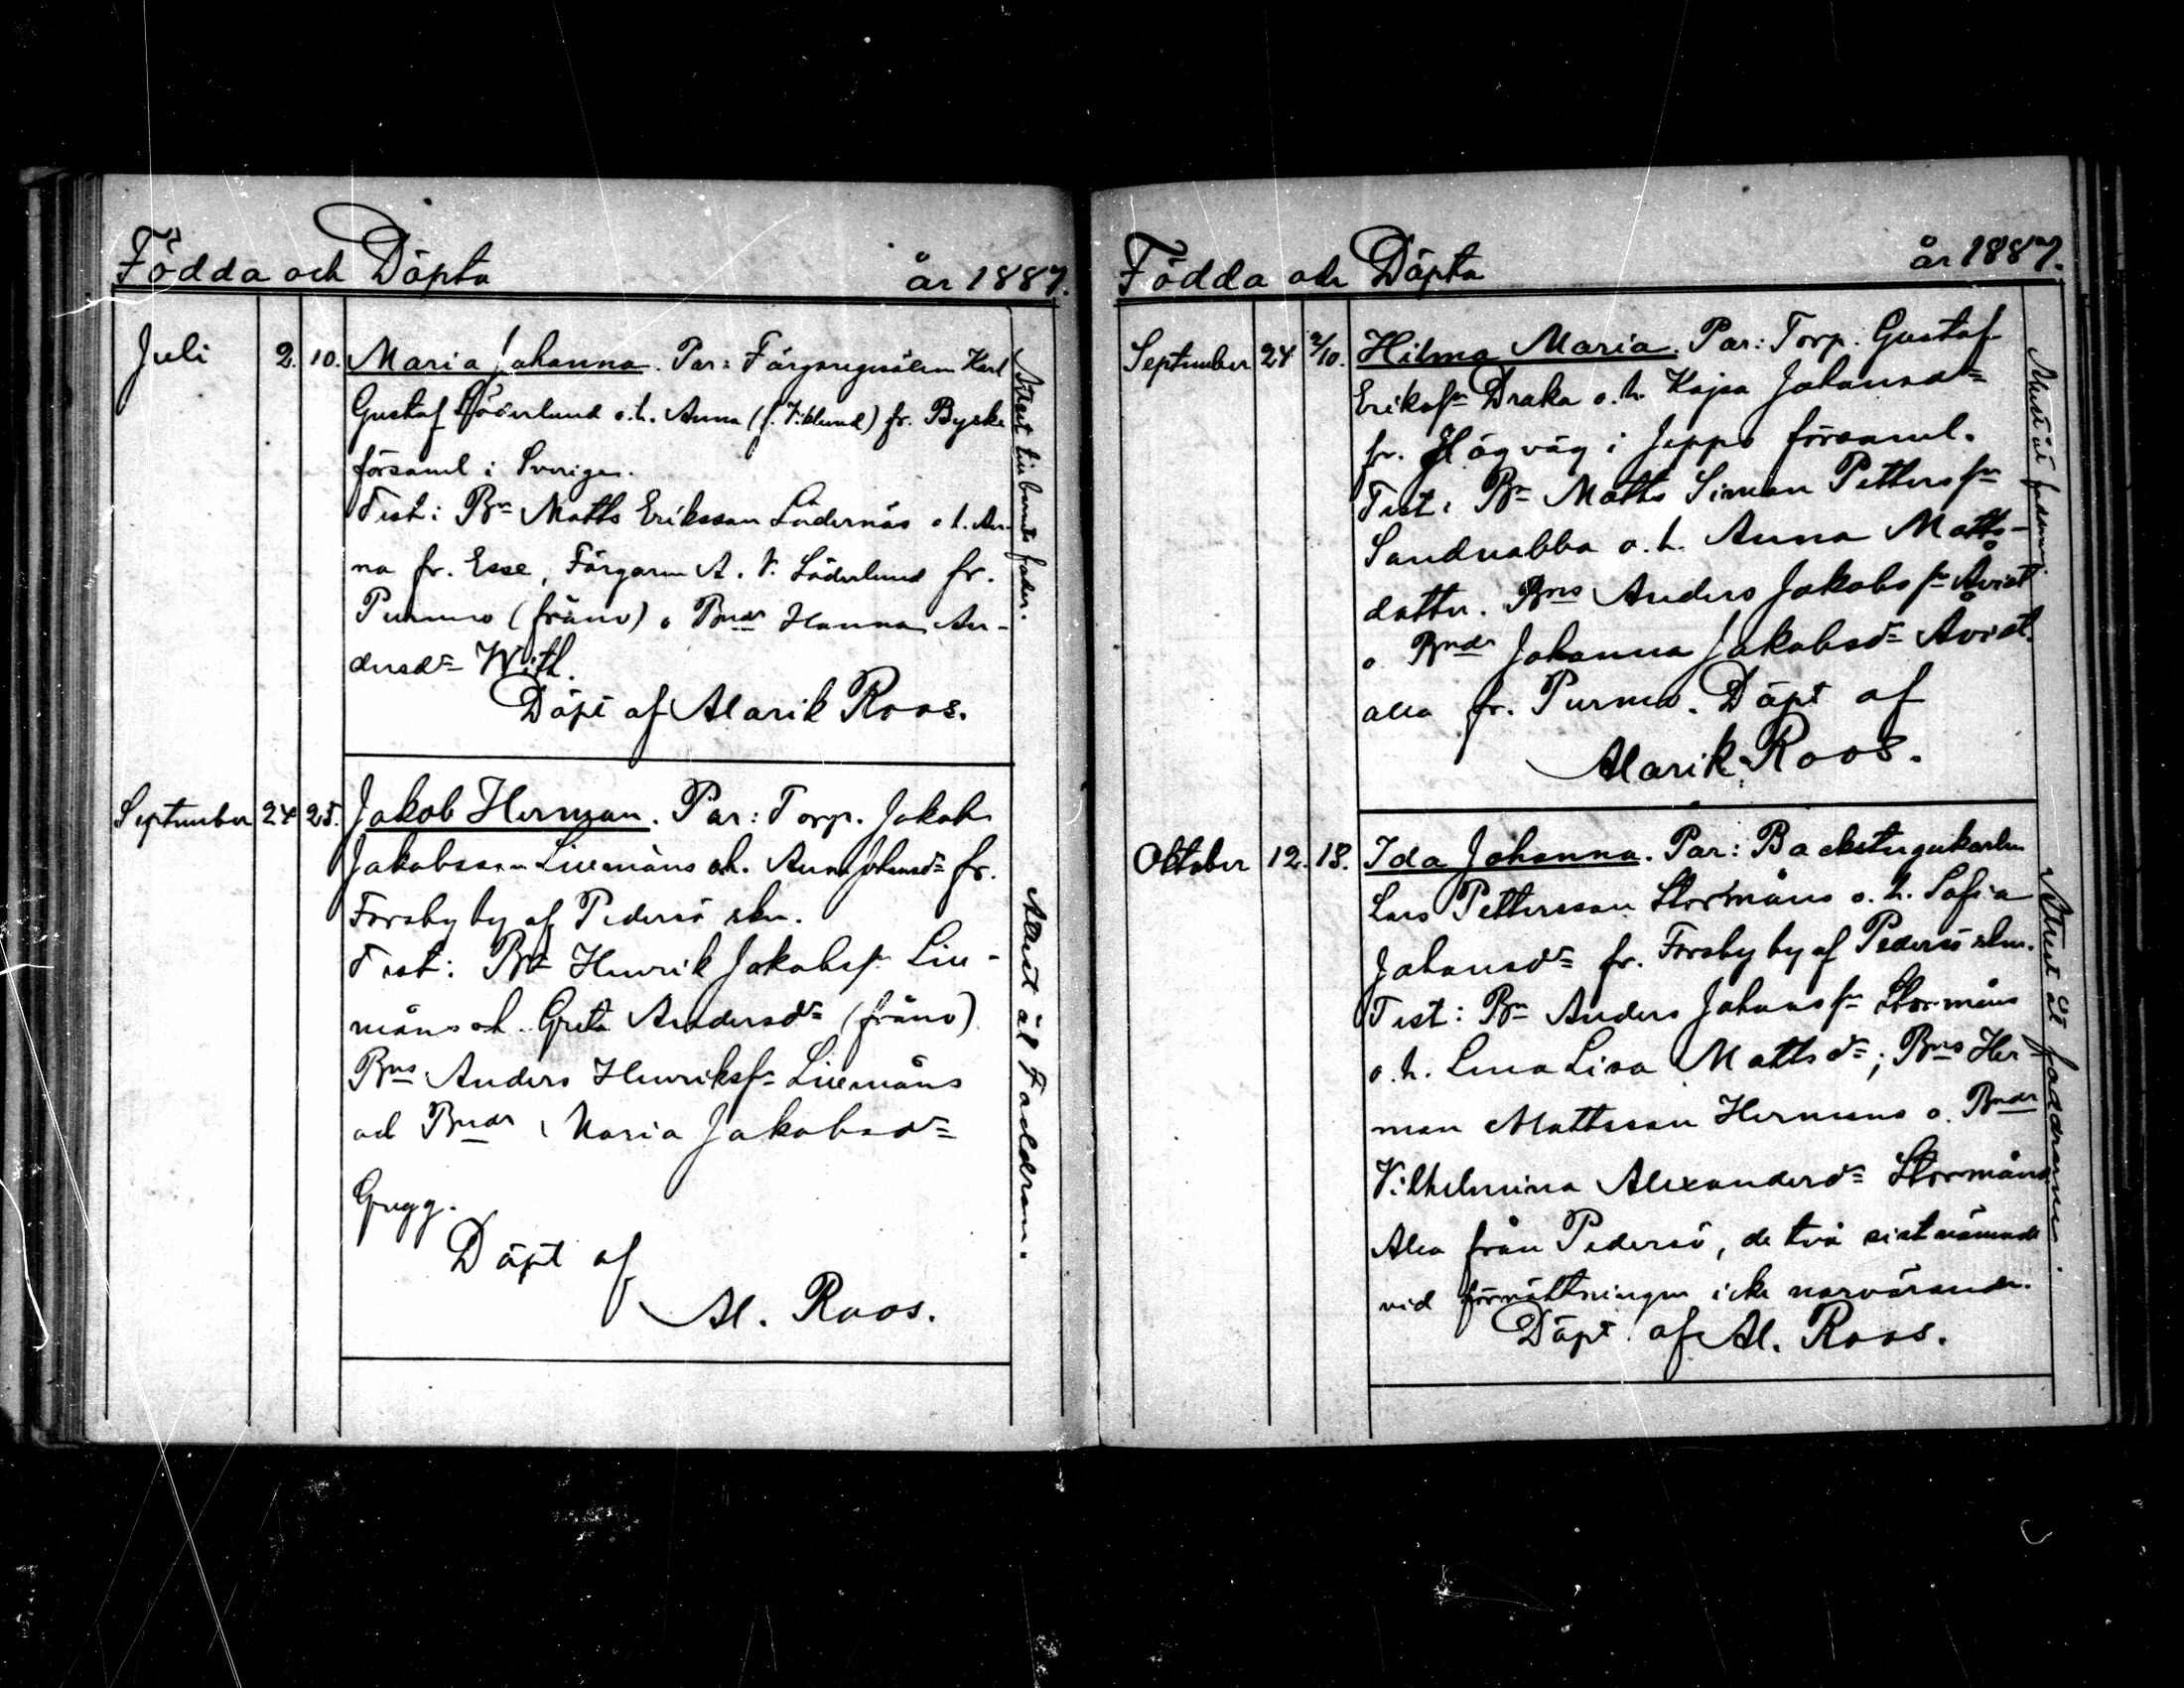 Födda och Döpta år 1887.
Juli 2. 10. Maria Johanna. Par: Färgaregesälen Karl
Gustaf Söderlund o. h. Anna (f. Viklund) fr. Byske
församl i Sverige.
Test: Bn Matts Eriksson Lådernäs o h. An-
na fr. Esse, Färgaren A. V. Söderlund fr.
Purmo (frånv) o Bndr Hanna An-
dersdr With.
Döpt af Alarik Roos.
fader.
September 24 25. Jakob Herman. Par: Torp. Jakob
Jakobsson Liremåns o h. Anna Johansdr fr.
Forsby by af Pedersö skn.
Test: Bn Henrik Jakobsſn Lire-
måns o h. Greta Andersdr (frånv)
Bns Anders Henriksſn Liremåns
och Bndr Maria Jakobsdr
Gregg.
Döpt af
Al. Roos.
Attest åt Faddrarn.
Födda och Döpta år 1887.
September 24 2/10. Hilma Maria. Par: Torp. Gustaf
Eriksſn Draka o. h. Kajsa Johansdr
fr. Högväg i Jeppo församl.
Test: Bn Matts Simon Pettersſn
Sandnabba o. h. Anna Matts-
dotter. Bns Anders Jakobsſn Åvist
o Bndr Johanna Jakobsdr Åvist.
alla fr. Purmo. Döpt af
Alarik Roos.
Attest åt
Oktober 12. 18. Ida Johanna. Par: Backstugukarlen
Lars Pettersson Stormåns o. h. Sofia
Johansdr fr. Forsby by af Pedersö skn.
Test: Bn Anders Johansſn Stormåns
o. h. Lena Lisa Mattsdr; Bns Her
man Mattsson Hermans o. Bndr
Vilhelmina Alexandersdr Stormåns
Alla från Pedersö, de två sistnämnde
vid förrättningen icke narvärande.
Döpt af Al. Roos.
Attest åt faddrarne.